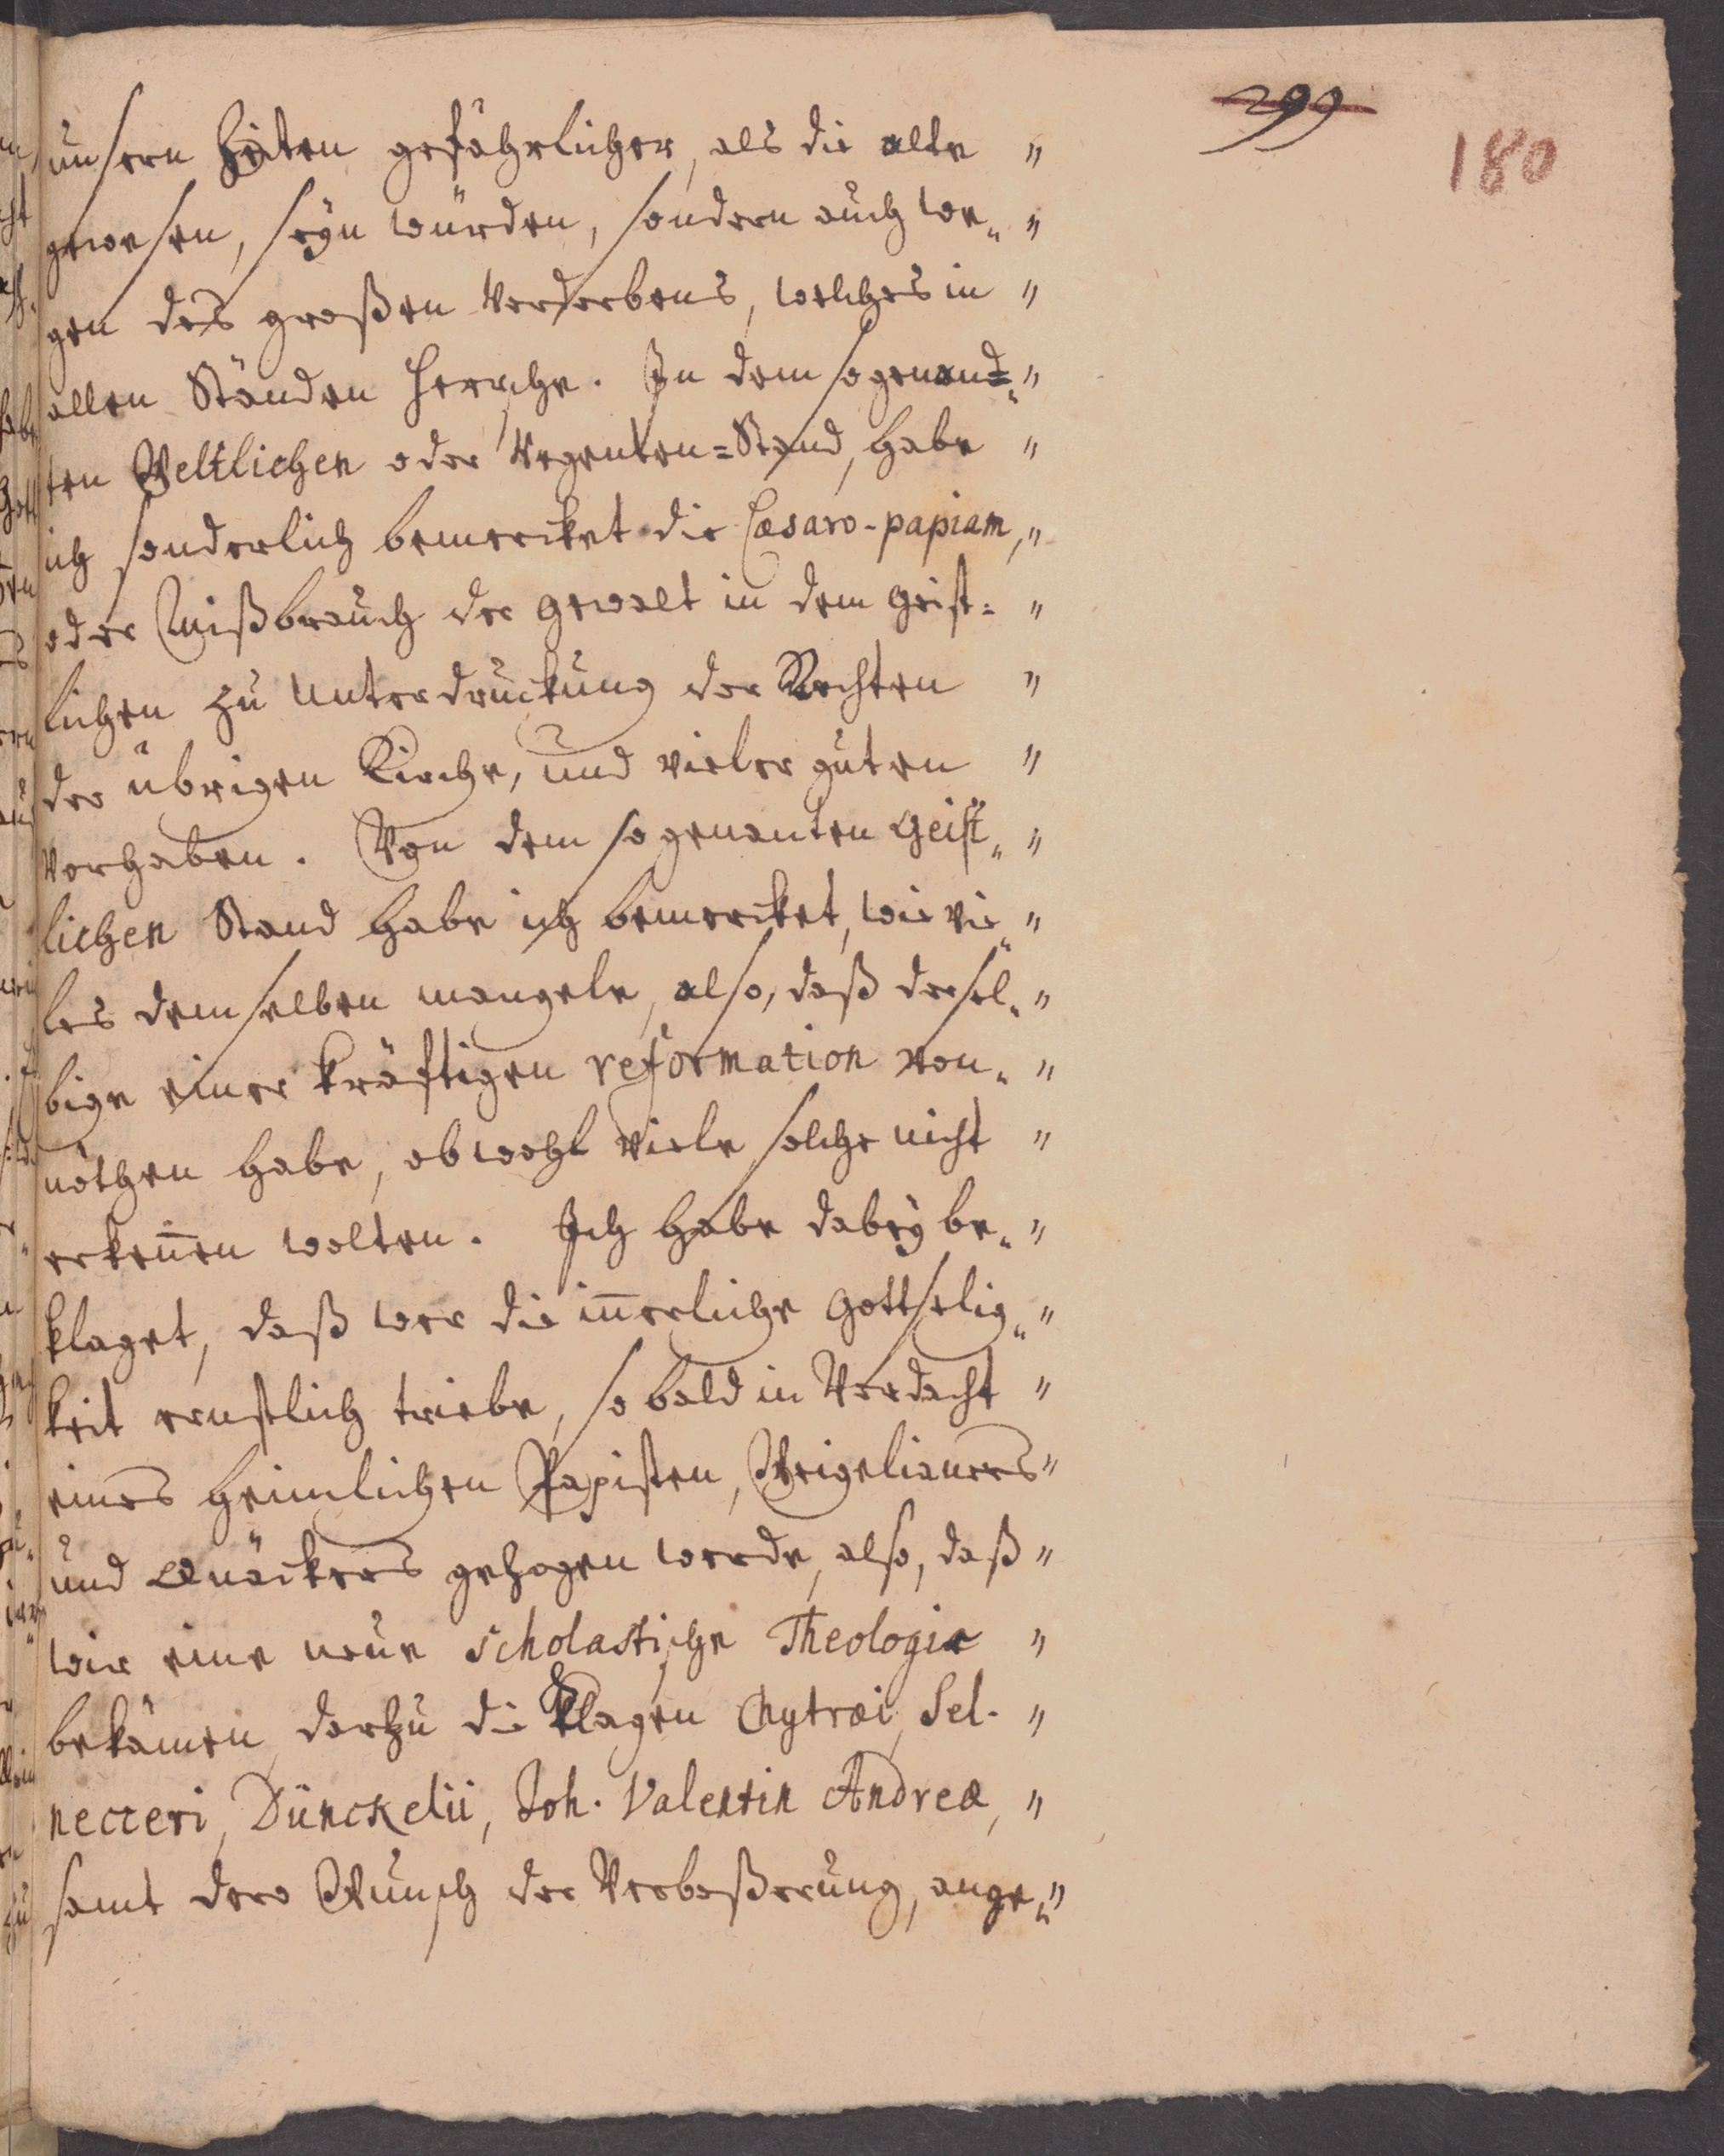 299
180
unsern Zeiten gefährlicher, als die alte "
gewesen, seyn würden, sondern auch we„ "
gen des großen Verderbens, welches in "
allen Ständen herrsche. In dem so genand= "
ten Weltlichen oder Regenten=Stand, habe "
ich sonderlich bemercket die Cæsaro-papiam, "
oder Mißbrauch der Gewalt in dem Geist= "
lichen zu Unterdrückung der Rechten "
der übrigen Kirche, und vieler guten "
Vorhaben. Von dem so genanten Geist„ "
lichen Stand habe ich bemercket, wie vie„ "
les demselben mangele, also, daß dersel„ "
bige einer kräftigen reformation von„ "
nöthen habe, obwohl viele solche nicht "
erkeñen wolten. Ich habe dabey be„ "
klaget, daß wer die iñerliche Gottselig„ "
keit ernstlich triebe, so bald in Verdacht "
eines heimlichen Papisten, Weigelianers "
und Quäckers gezogen werde, also, daß "
wir eine neue scholastische Theologie "
bekämen, darzu die Klagen Chytræi, Sel- "
necceri, Dünckelii, Joh. Valentin Andreæ, "
samt dero Wunsch der Verbeßerung, ange„ "